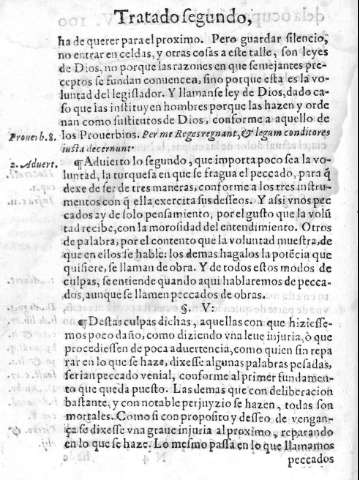 Tratado segundo,
ha de querer para el proximo. Pero guardar silencio,
no entrar en celdas, y otras cosas a este talle, son leyes
de Dios, no porque las razones en que semejantes pre-
ceptos se fundan conuencea, sino porque esta es la vo-
luntad del legislador. Y llamanse ley de Dios, dado ca-
so que las instituyen hombres porque las hazen y orde
nan como sustitutos de Dios, conforme a aquello de
Prouerb. 8. los Prouerbios. Per me Reges regnant, & legum conditores
iusta decernunt.
2. Aduert. ¶ Aduierto lo segundo, que importa poco sea la vo-
luntad, la turquesa en que se fragua el peccado, para q̃
dexe de ser de tres maneras, conforme a los tres instru-
mentos con q̃ ella exercita sus desseos. Y assi vnos pec
cados ay de solo pensamiento, por el gusto que la volũ
tad recibe, con la morosidad del entendimiento. Otros
de palabra, por el contento que la voluntad muestra, de
que en ellos se hable: los demas hagalos la potẽcia que
quisiere, se llaman de obra. Y de todos estos modos de
culpas, se entiende quando aqui hablaremos de pecca-
dos, aunque se llamen peccados de obras.
§. V:
¶ Destas culpas dichas, aquellas con que hiziesse-
mos poco daño, como diziendo vna leue injuria, ò que
procediessen de poca aduertencia, como quien sin repa
rar en lo que se haze, dixesse algunas palabras pesadas,
serian peccado venial, conforme al primer fundamen-
to que queda puesto. Las demas que con deliberacion
bastante, y con notable perjuyzio se hazen, todas son
mortales. Como si con proposito y desseo de vengan-
ça se dixesse vna graue injuria al proximo, reparando
en lo que se haze. Lo mesmo passa en lo que llamamos
peccados